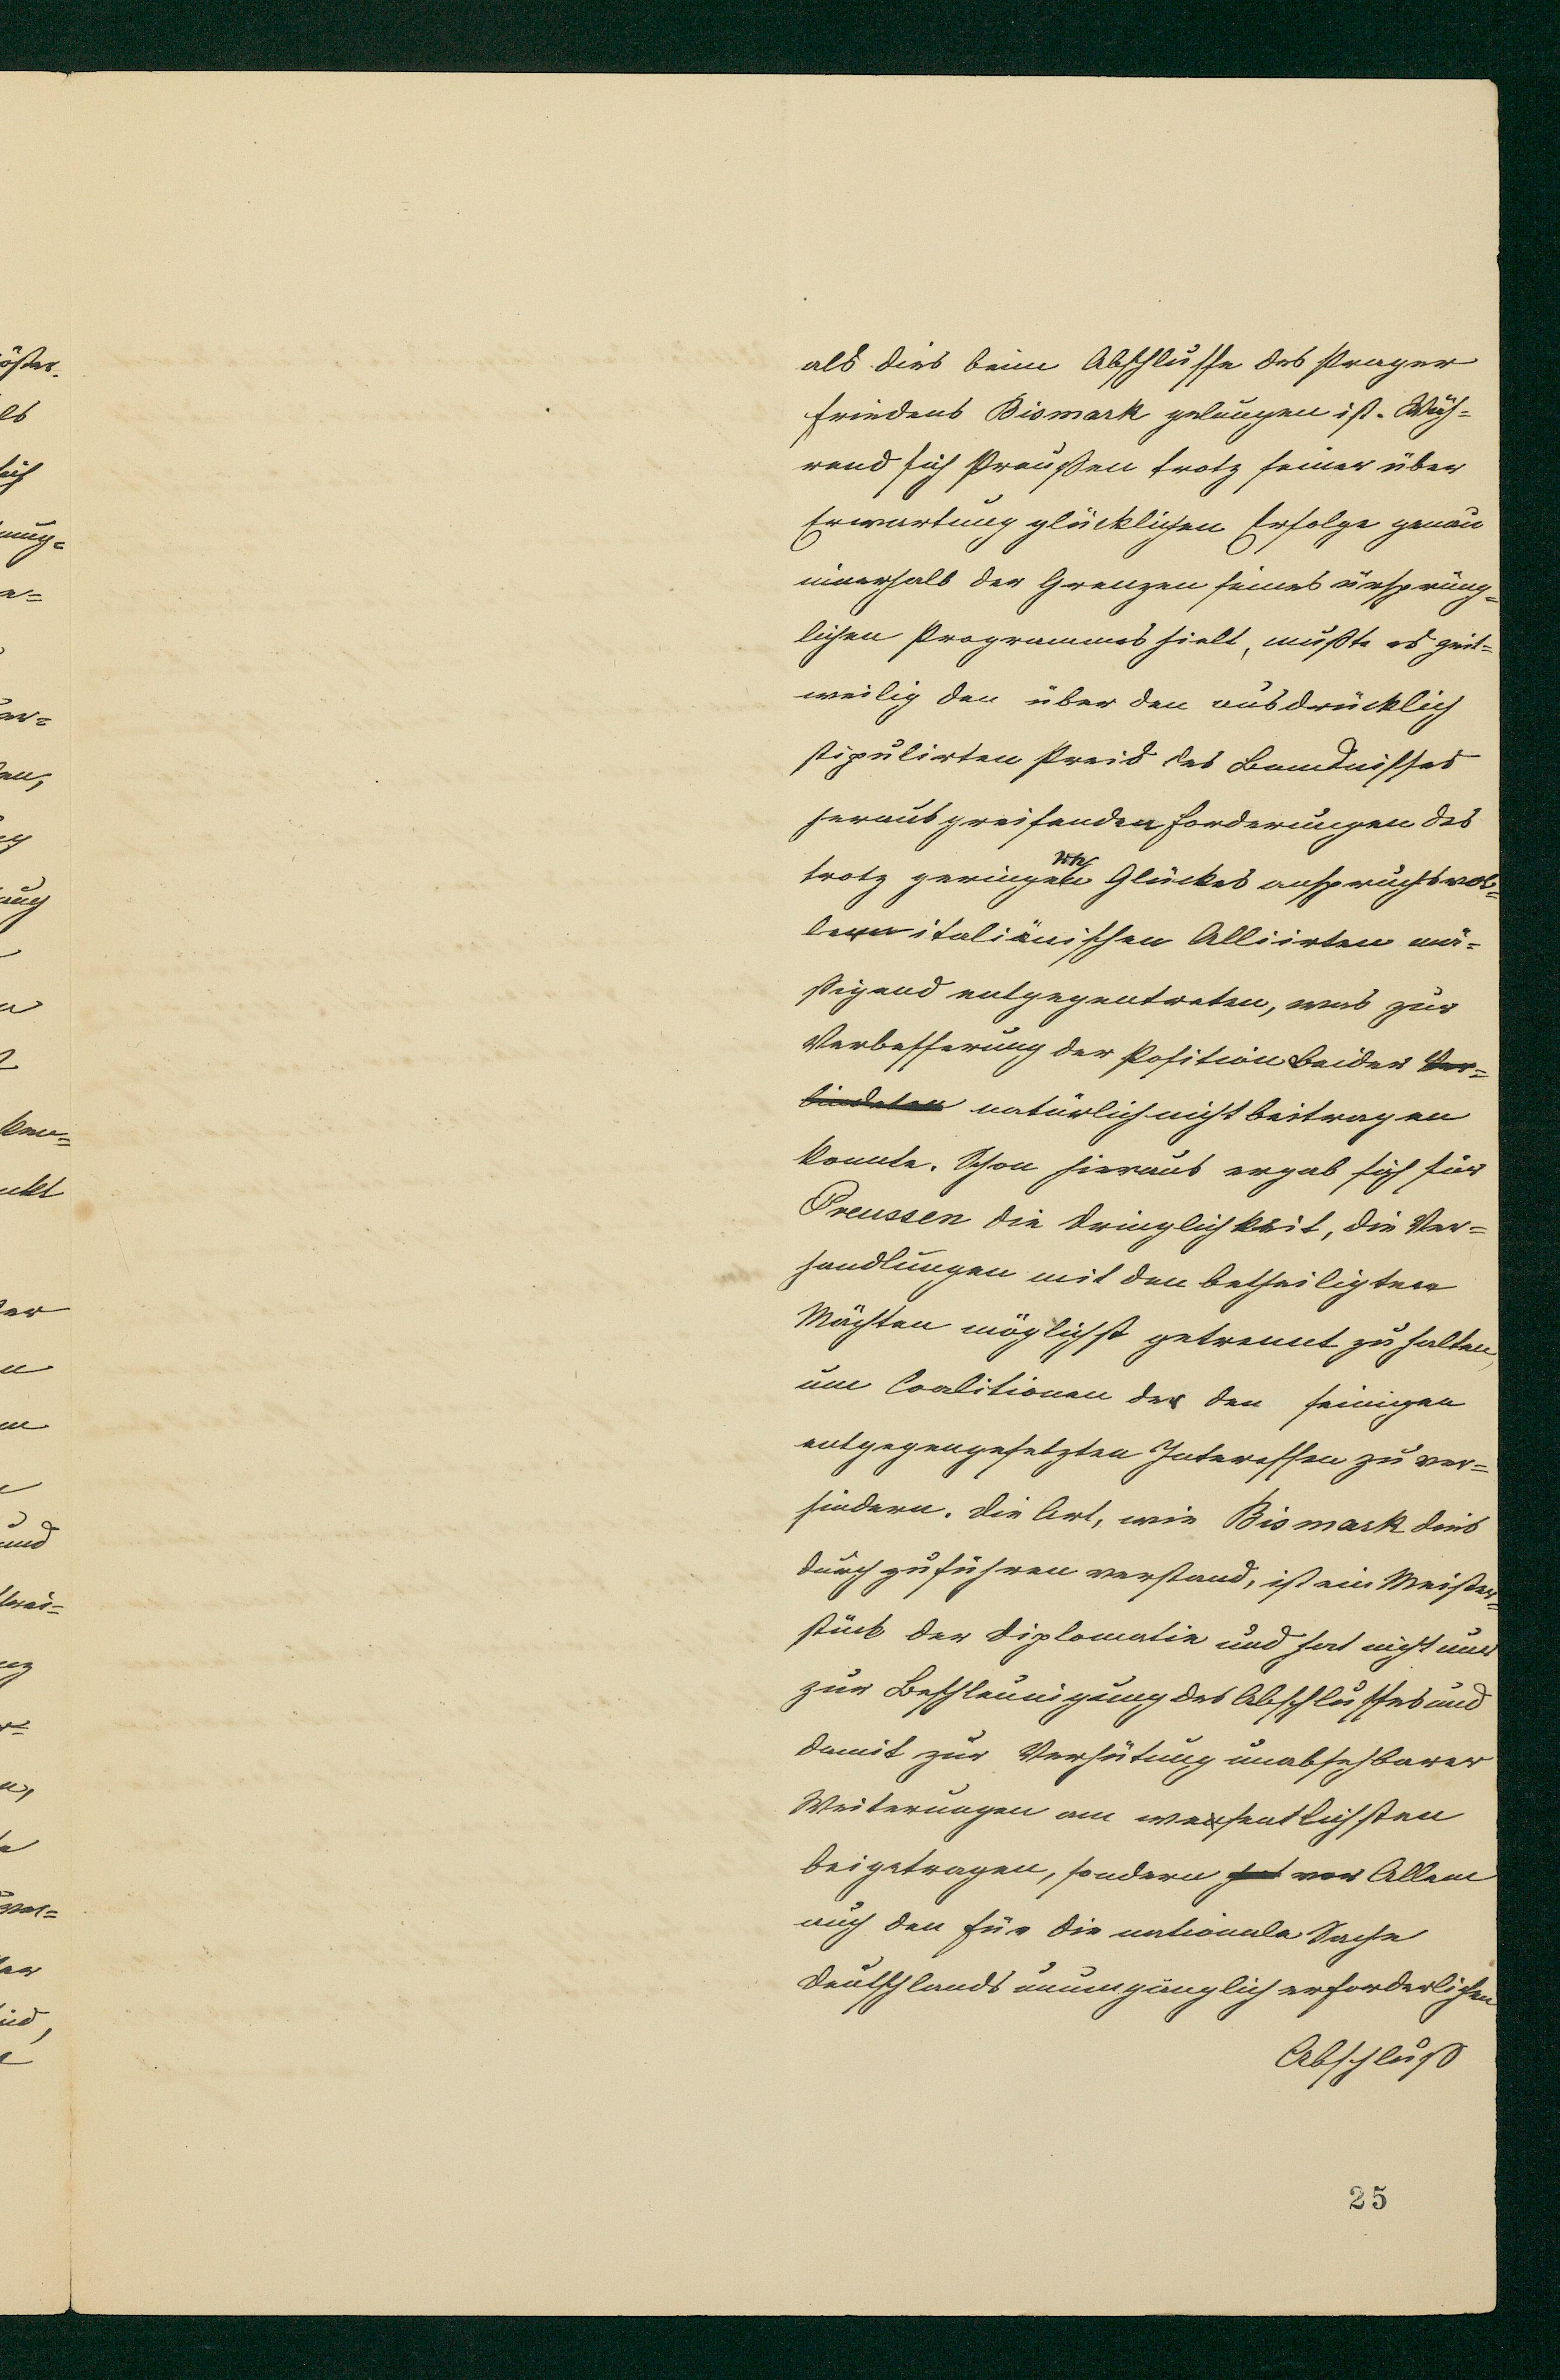 als dies beim Abschlusse des Prager
Friedens Bismark gelungen ist. Wäh-
rend sich Preußen trotz seiner über
Erwartung glücklichen Erfolge genau
innerhalb der Grenzen seines ursprüng-
lichen Programmes hielt, mußte es zeit-
weilig den über den ausdrücklich
stipulirten Preis des Bündnisses
hinausgreifenden Forderungen des
trotz geringen Glückes anspruchsvol-
len italiänischen Alliirten mä-
ßigend entgegentreten, was zur
Verbesserung der Position beider Ver-
bündeten natürlich nicht beitragen
konnte. Schon hieraus ergab sich für
Preussen die Dringlichkeit, die Ver-
handlungen mit den betheiligten
Mächten möglichst getrennt zu halten,
um Coalitionen der den seinigen
entgegengesetzten Interessen zu ver-
hindern. Die Art, wie Bismark dies
durchzuführen verstand, ist ein Meister-
stück der Diplomatie und hat nicht nur
zur Beschleunigung des Abschlusses und
damit zur Verhütung unabsehbarer
Weiterungen am wesentlichsten
beigetragen, sondern hat vor Allem
auch den für die nationale Sache
Deutschlands unumgänglich erforderlichen
Abschluß
25